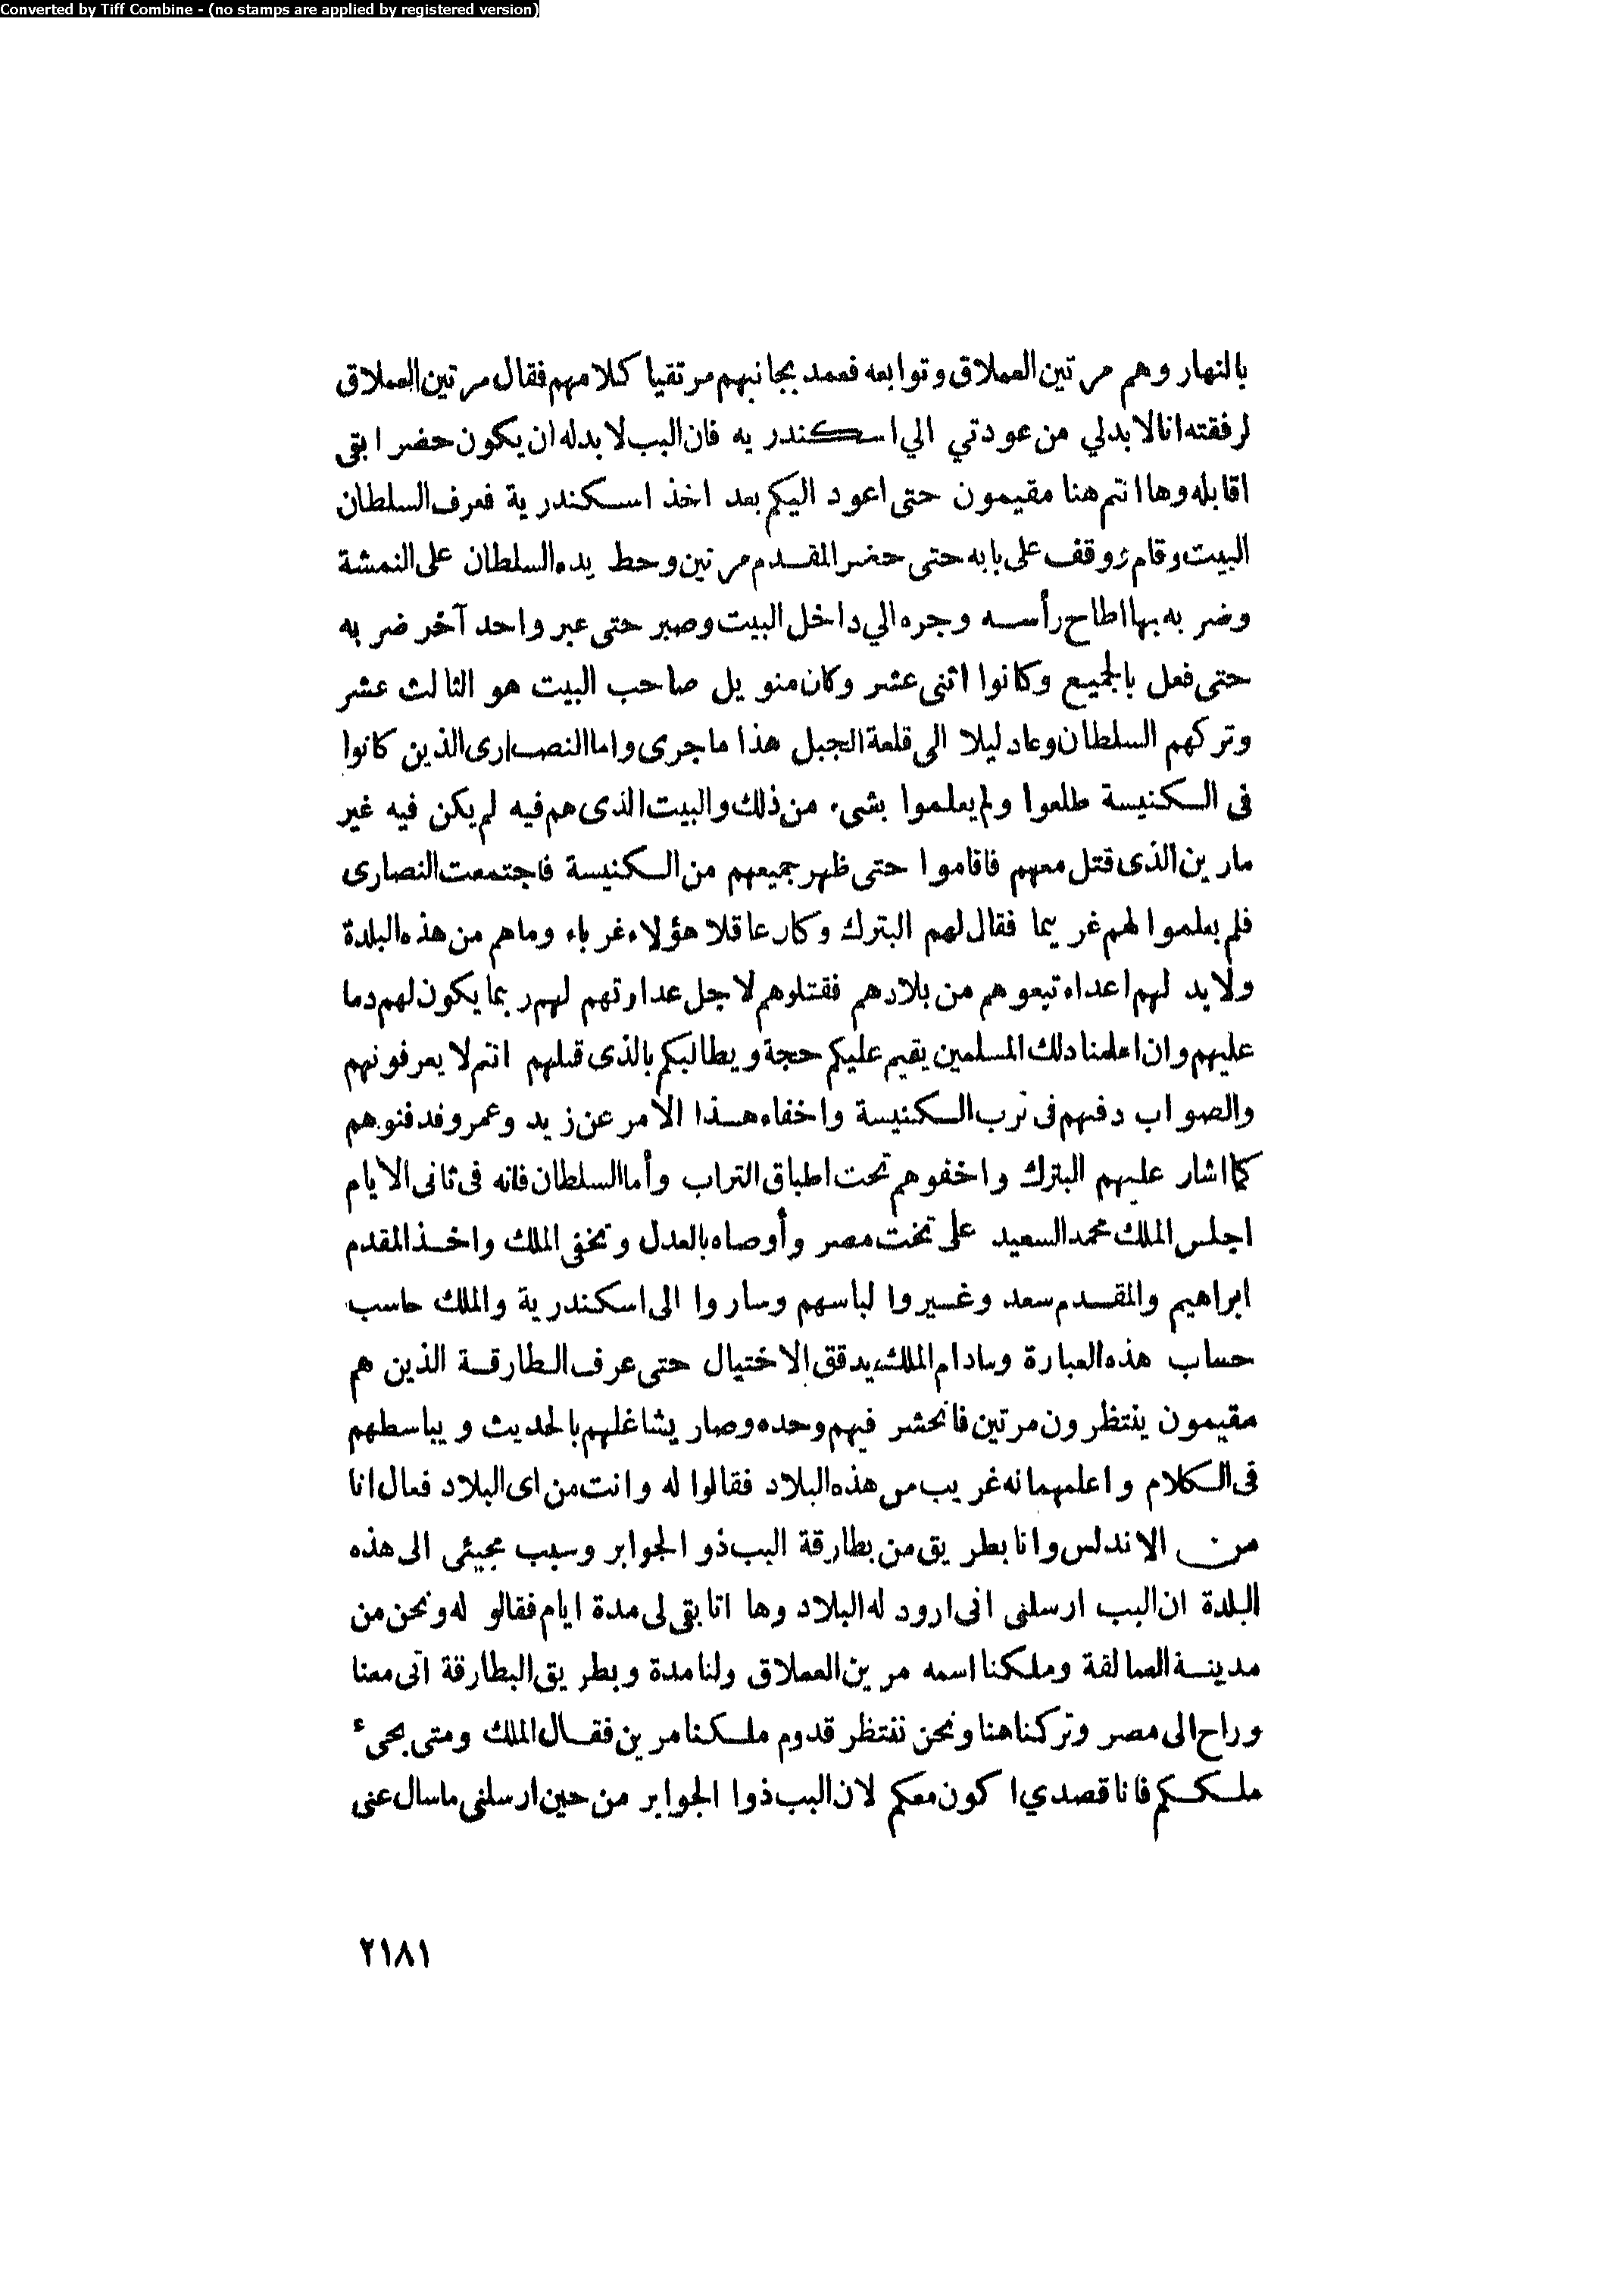 Converted by Tiff Combine - (no stamps are applied by registered version)
بالنهار وهم مرتين العملاق وتوابعه فعمد بجانبهم مرتقيا كلامهم فقال مرتين العملاق
لرفقته انا لا بدلي من عودتي الي اسكندريه فان البب لا بد له ان يكون حضر ابقى
اقابله وها انتم هنا مقيمون حتى اعود اليكم بعد اخذ اسكندرية فعرف السلطان
البيت وقام ووقف على بابه حتى حضر المقدم مرتين وحط يده السلطان على النمشة
وضربه بها اطاح رأسه وجره الي داخل البيت وصبر حتى عبر واحد آخر ضربه
حتى فعل بالجميع وكانوا اثنى عشر وكان منويل صاحب البيت هو الثالث عشر
وتركهم السلطان وعاد ليلا الى قلعة الجبل هذا ما جرى واما النصارى الذين كانوا
فى الكنيسة طلعوا ولم يعلموا بشىء من ذلك والبيت الذى هم فيه لم يكن فيه غير
مارين الذى قتل معهم فاقاموا حتى ظهر جميعهم من الكنيسة فاجتمعت النصارى
فلم يعلموا لهم غريما فقال لهم البترك وكان عاقلا هؤلاء غرباء وما هم من هذه البلدة
ولابد لهم اعداء تبعوهم من بلادهم فقتلوهم لاجل عداوتهم لهم ربما يكون لهم دما
عليهم وان اعلمنا دلك المسلمين يقيم عليكم حجة ويطالبكم بالذى قبلهم انتم لا يعرفونهم
والصواب دفنهم فى ترب الكنيسة واخفاء هذا الامر عن زيد وعمرو فدفنوهم
كما اشار عليهم البترك واخفوهم تحت اطباق التراب وأما السلطان فانه فى ثانى الايام
اجلس الملك محمد السعيد على تخت مصر وأوصاه بالعدل وتخفى الملك واخذ المقدم
ابراهيم والمقدم سعد وغيروا لباسهم وساروا الى اسكندرية والملك حاسب
حساب هذه العبارة ومادام الملك يدقق الاختيال حتى عرف الطارقة الذين هم
مقيمون ينتظرون مرتين فانحشر فيهم وحده وصار يشاغلهم بالحديث ويباسطهم
فى الكلام واعلمهم انه غريب من هذه البلاد فقالوا له وانت من اى البلاد فعال انا
من الاندلس وانا بطريق من بطارقة البب ذو الجوابر وسبب مجيئى الى هذه
البلدة ان البب ارسلنى انى ارود له البلاد وها انا بقى لى مدة ايام فقالو له ونحن من
مدينة العمالفة وملكنا اسمه مرين العملاق ولنا مدة وبطريق البطارقة اتى معنا
وراح الى مصر وتركنا هنا ونحن ننتظر قدوم ملكنا مرين فقال الملك ومتى يجىء
ملككم فانا قصدي اكون معكم لان البب ذوا الجوابر من حين ارسلنى ما سال عنى
٢١٨١